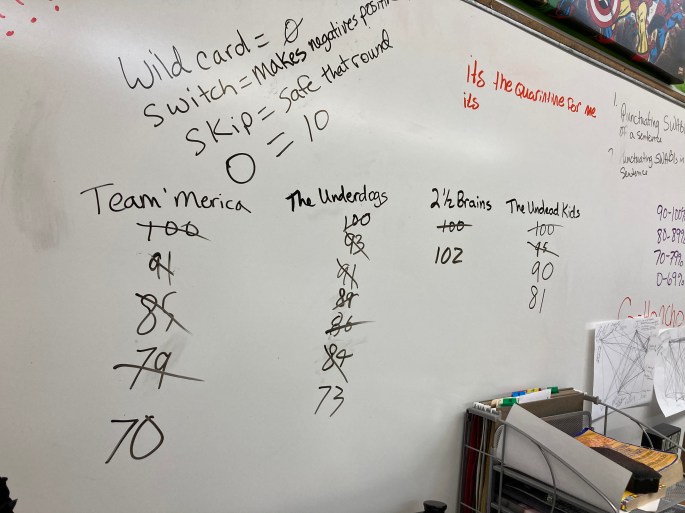 Wild card = 0
Switch = makes negatives positive
Skip = safe that round
0 = 10
Its the quarintine for me
its
1. Punctuating
of a sentence
Sentence
90-100%
80-89%
70-79%
0-69%
Team 'Merica
100
91
85
79
70
The Underdogs
100
93
91
89
86
84
73
2 1/2 Brains
100
102
The Undead Kids
100
95
90
81